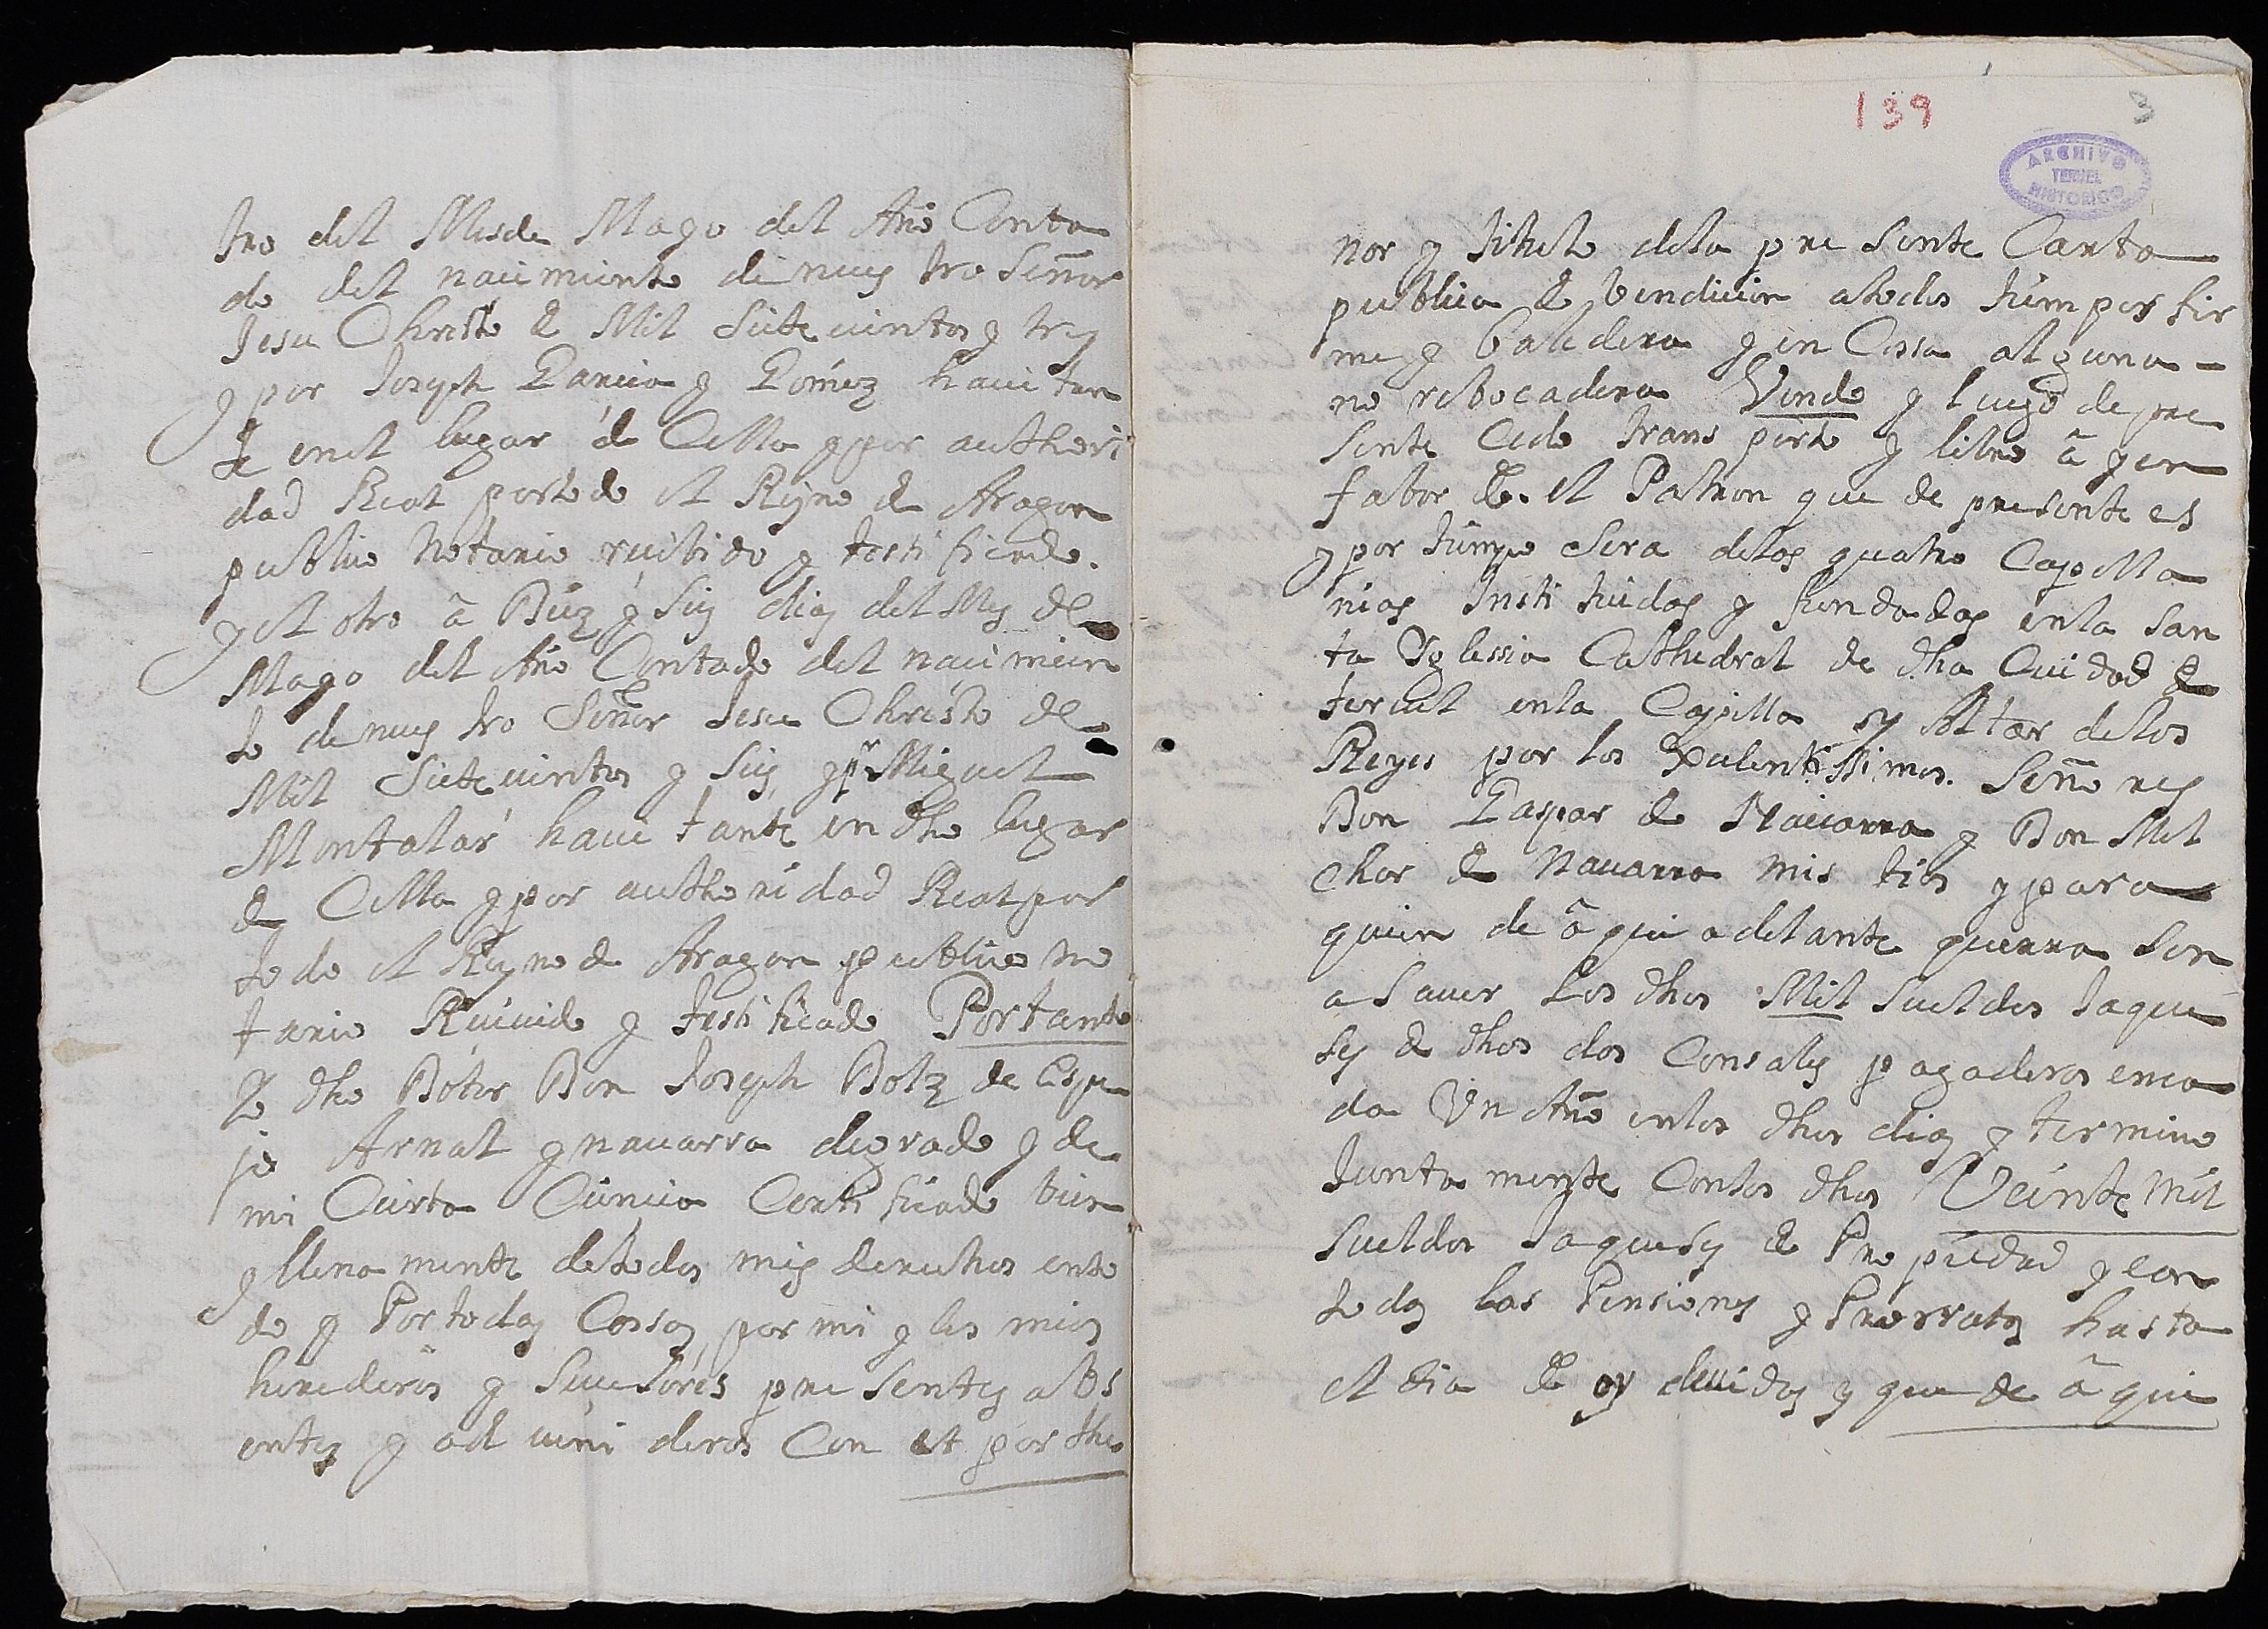 tro del Mes de Mayo del Año Conta
do del nacimiento de nues tro Señor
Jesu Christo de Mil Siete cientos y tres
y por Joseph Garcia y Gomez havitan
te en el lugar de Cella y por authori
dad Real por todo el Reyno de Aragon
publico Notario recibido y testificado.
y el otro â Diez y Seis dias del Mes de
Mayo del Año Contado del nacimien
to de nues tro Señor Jesu Christo de
Mil Siete cientos y Seis, y pr Miguel
Montalar havi tante en dho lugar
de Cella y por authoridad Real por
todo el Reyno de Aragon publico no
tario Recivido y testificado Por tanto
Yo dho Dotor Don Joseph Dolz de Espe
jo Arnal y navarra de grado y de
mi Cierta Ciencia Certificado bien
y llena mente de todos mis derechos en to
do y Por todas Cossas por mi y los mios
herederos y Sucesores presentes abs
entes y ad veni deros Con el por the
139
3
ARCHIVO
HISTORICO
TERUEL
nor y titulo dela pre sente Carta
publica de bendicion a todos tiempos fir
me y baledera y en Cossa alguna
no rebocadera Vendo y luego de pre
sente Cedo trans porto y libro â y en
fabor de el Patron que de presente es
y por tiempo Sera delas quatro Capella
nias Insti tuidas y fundadas enla San
ta Yglessia Cathedral de dha Ciudad de
teruel enla Capilla y Altar delos
Reyes por los Excelentissimos Seño res
Don Gaspar de Navarra y Don Mel
chor de Navarra mis tios y para
quien de â qui adelante querra Son
a Saver Los dhos Mil Sueldos Jaque
ses de dhos dos Consales pagaderos en ca
da Un Año enlos dhos dias y termino
Junta mente Conlos dhos Veinte Mil
Sueldos Jaqueses de Pro piedad y con
todas las Pensiones y Prorratas hasta
el dia de oy devidas y que de â qui